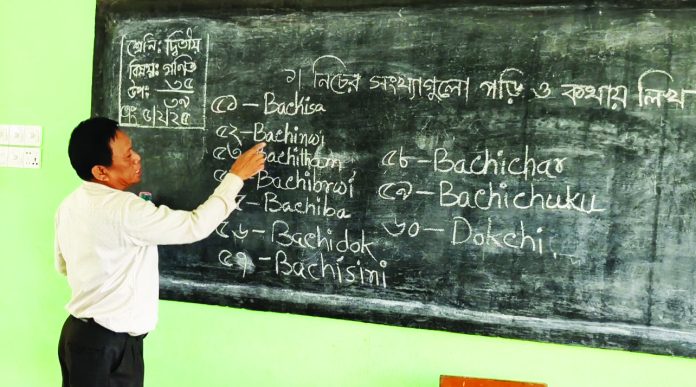 শ্রেনি: দ্বিতীয়
বিষয়: গণিত
উপ: ৩৫
৩৯
১। নিচের সংখ্যাগুলো পড়ি ও কথায় লিখ
৫১ – Bachisa
৫২ – Bachinwi
৫৩ – Bachitham
Bachibrwi
৫ – Bachiba
৫৬ – Bachidok
৫৭ – Bachisini
৫৮ – Bachichar
৫৯ – Bachichuku
৬০ – Dokchi